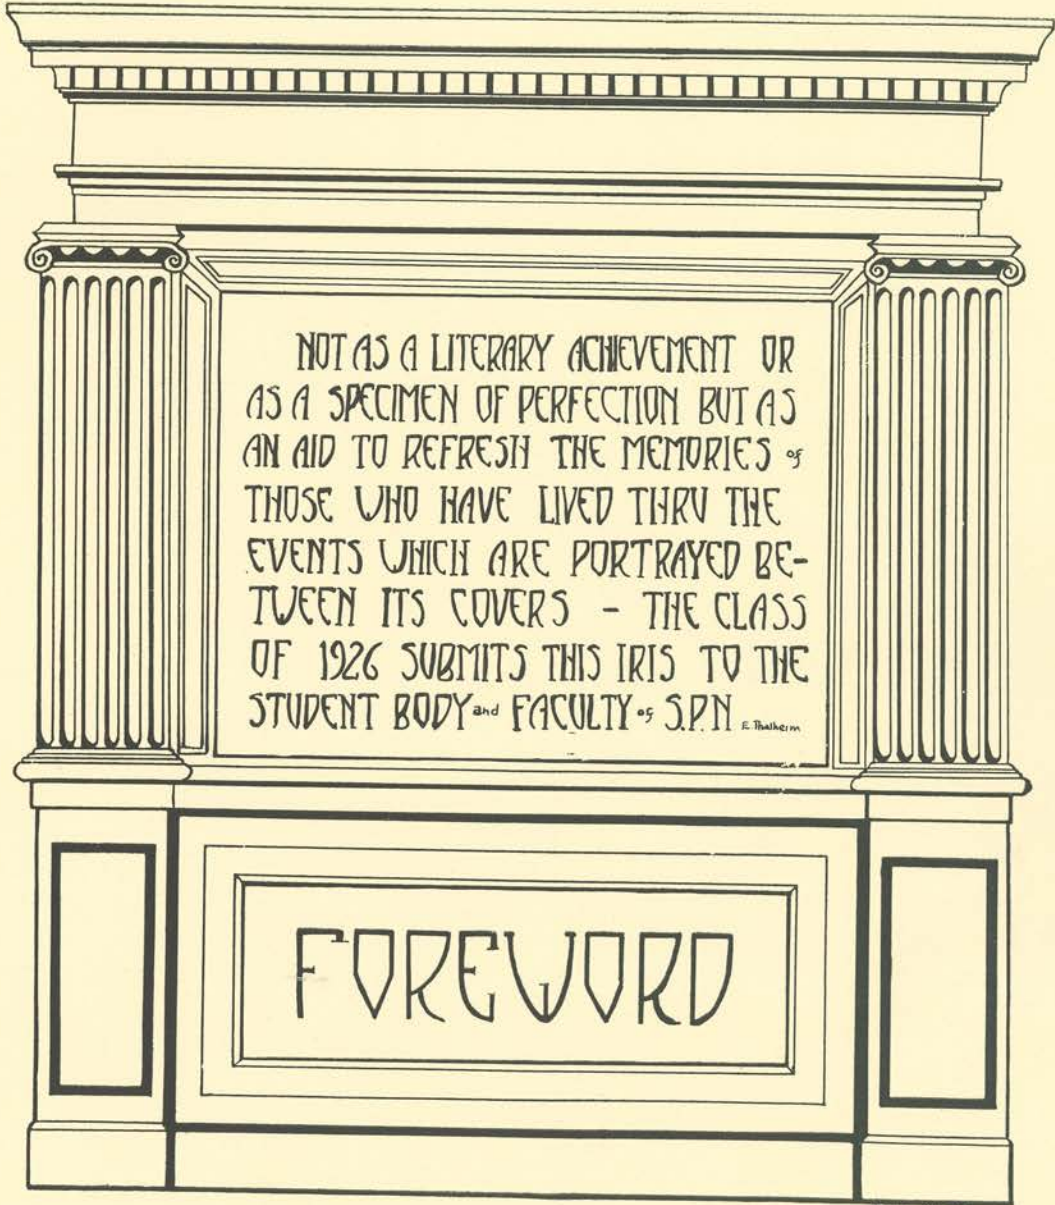 NOT AS A LITERARY ACHIEVEMENT OR
AS A SPECIMEN OF PERFECTION BUT AS
AN AID TO REFRESH THE MEMORIES of
THOSE WHO HAVE LIVED THRU THE
EVENTS WHICH ARE PORTRAYED BE-
TWEEN ITS COVERS – THE CLASS
OF 1926 SUBMITS THIS IRIS TO THE
STUDENT BODY and FACULTY of S.P.N
E. Thalheim
FOREWORD